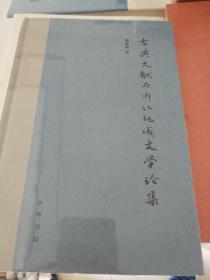 古典文献与浙江地域文学论集
中华书局